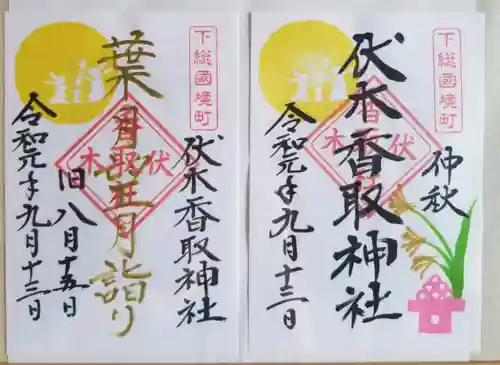 下総國境町
仲秋
伏木香取神社
令和元年九月十三日
下総國境町
伏木香取神社
葉月
月詣り
旧八月十五日
令和元年九月十三日